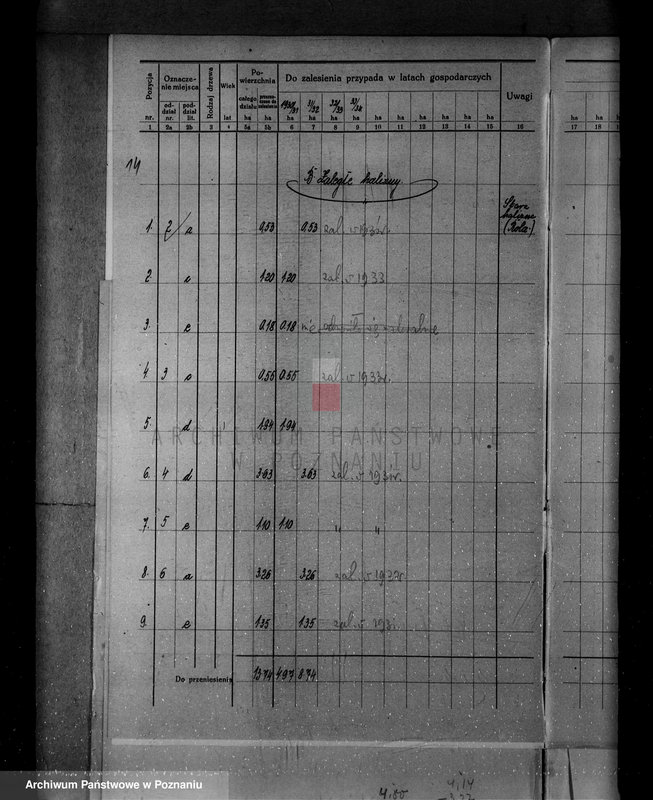 Pozycja nr. Oznaczenie miejsca oddział nr. poddział lit. Rodzaj drzewa Wiek lat Powierzchnia całego działu ha Do zalesienia przypada w latach gospodarczych Uwagi
1930/31 31/32 32/33 33/34
ha ha ha ha ha ha ha ha ha ha
1 2a 2b 3 4 5a 5b 6 7 8 9 10 11 12 13 14 15 16 17 18
14
B Zaległe halizny
1. 2 a 0.53 0.53 zal. w
Stare halizny (Rola)
2. c 1.20 1.20 zal. w 1933
3. e 0.18 0.18 nie
4. 3 0.55 0.55 zal. w 1933 r.
5. d 1.94 1.94
ARCHIWUM PAŃSTWOWE
W POZNANIU
6. 4 d 3.63 3.63 zal. w
7. 5 e 1.10 1.10 " "
8. 6 a 3.26 3.26 zal. w
9. e 1.35 1.35 zal. w
Do przeniesienia 13.74 4.97 8.74
4,14
4,00
Archiwum Państwowe w Poznaniu